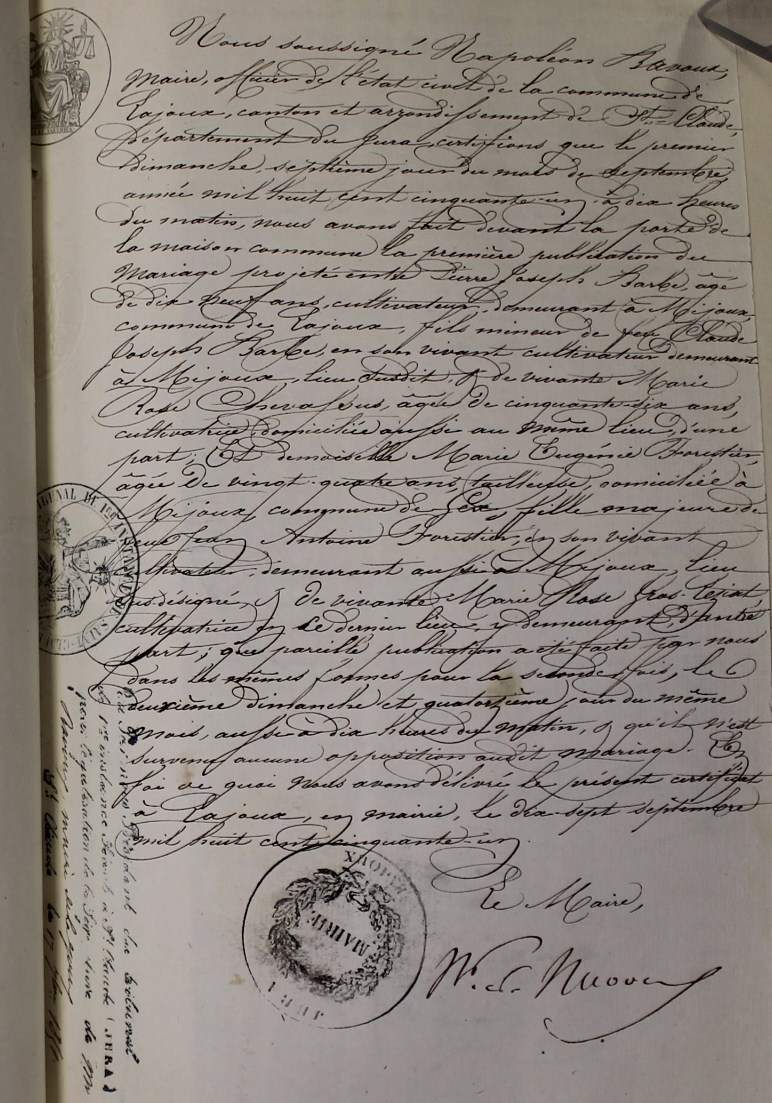 Nous soussigné Napoléon Bavoux,
Maire, officier de l'état civil de la commune de
Lajoux, canton et arrondissement de St. Claude,
Département du Jura, certifions que le premier
Dimanche, septième jour du mois de septembre,
année mil huit cent cinquante-un, à dix heures
du matin, nous avons fait devant la porte de
la maison commune la première publication du
Mariage projeté entre Pierre Joseph Barbe, âgé
de dix neuf ans, cultivateur, demeurant à Mijoux,
commune de Lajoux, fils mineur de feu Claude
Joseph Barbe, en son vivant cultivateur demeurant
à Mijoux, lieu susdit, & de vivante Marie
Rose Chevassus, âgée de cinquante-six ans,
cultivatrice, domiciliée aussi au même lieu, d'une
part; Et demoiselle Marie Eugénie Forestier
âgée de vingt-quatre ans, tailleuse, domiciliée à
Mijoux, commune de Gex, fille majeure de
feu Jean Antoine Forestier, en son vivant
cultivateur, demeurant aussi à Mijoux, lieu
sus-désigné, & de vivante Marie Rose Gros-
cultivatrice en ce dernier lieu, y demeurant, d'autre
part; que pareille publication a été faite par nous
dans les mêmes formes pour la seconde fois, le
deuxième dimanche et quatorzième jour du même
mois, aussi à dix heures du matin, & qu'il n'est
survenu aucune opposition audit mariage. En
foi de quoi nous avons délivré le présent certificat
à Lajoux, en mairie, le dix-sept septembre
mil huit cent cinquante-un.
Le Maire,
MAIRIE
JURA
TRIBUNAL DE 1RE INSTANCE
SAINT-CLAUDE
Président du tribunal
de 1re instance séant à St. Claude (JURA)
pour légalisation de la signature de Mr
Bavoux, maire de Lajoux
St. Claude le 17